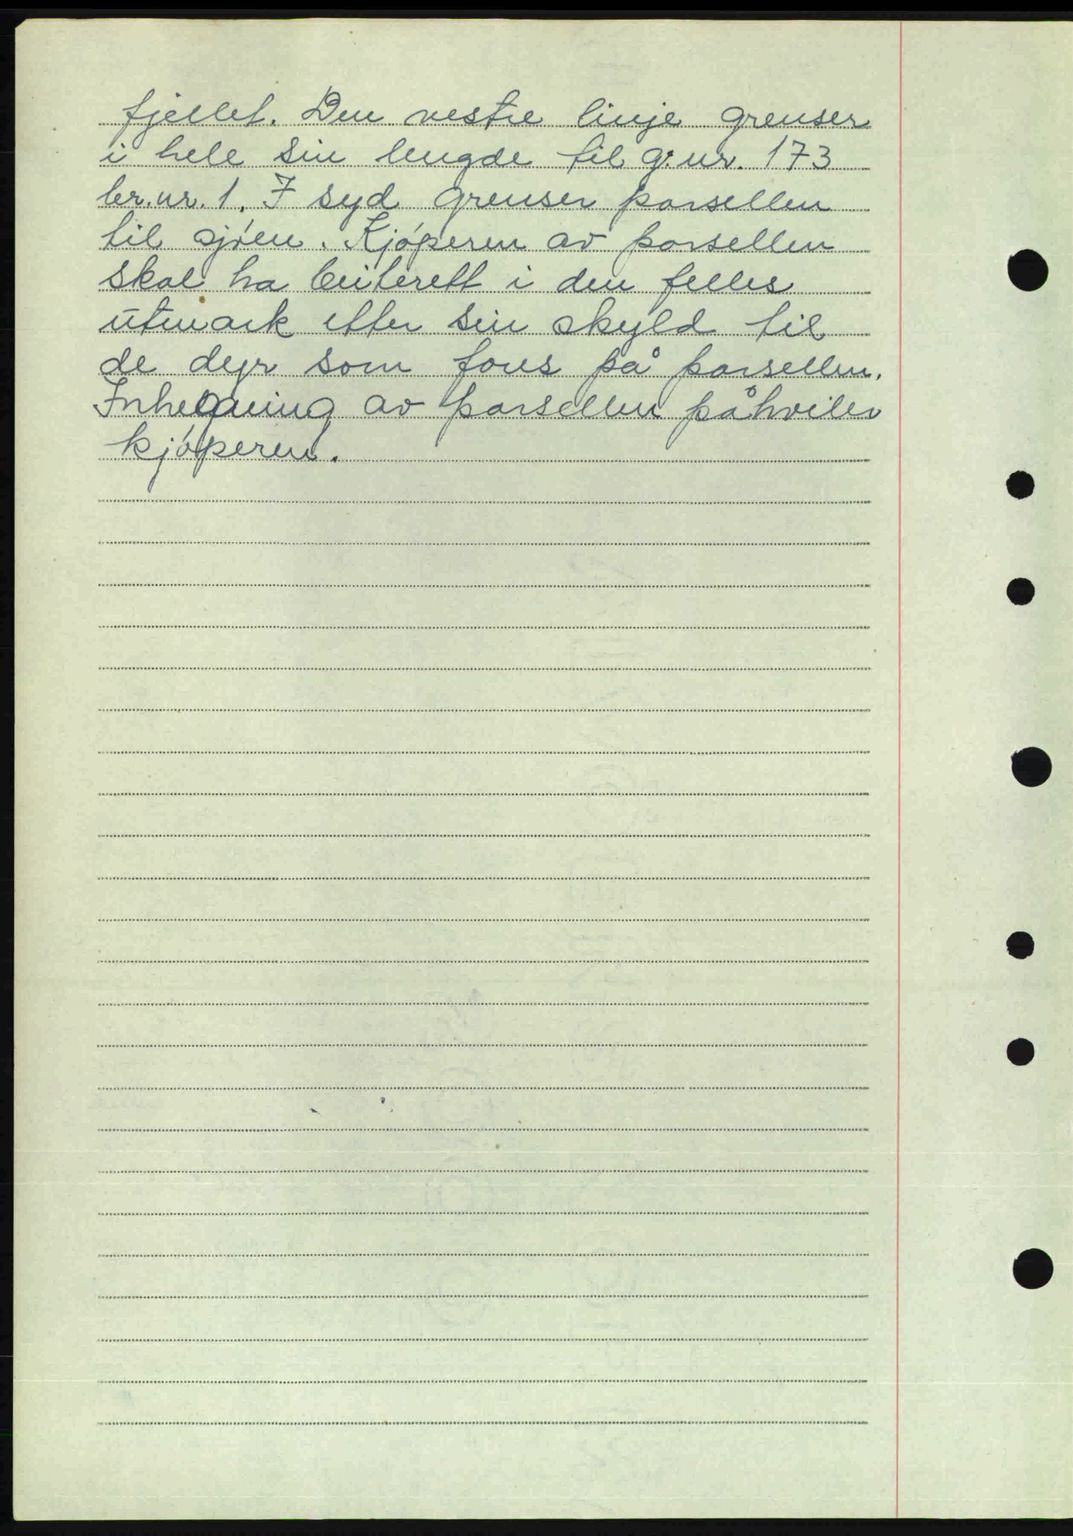 fjellet. Den vestre linje grenser
i hele sin lengde til g.nr. 173
br.nr. 1. I syd grenser parsellen
til sjøen. Kjøperen av parsellen
skal ha beiterett i den felles
utmark etter sin skyld til
de dyr som fores på parsellen.
Inhegning av parsellen påhviler
kjøperen.